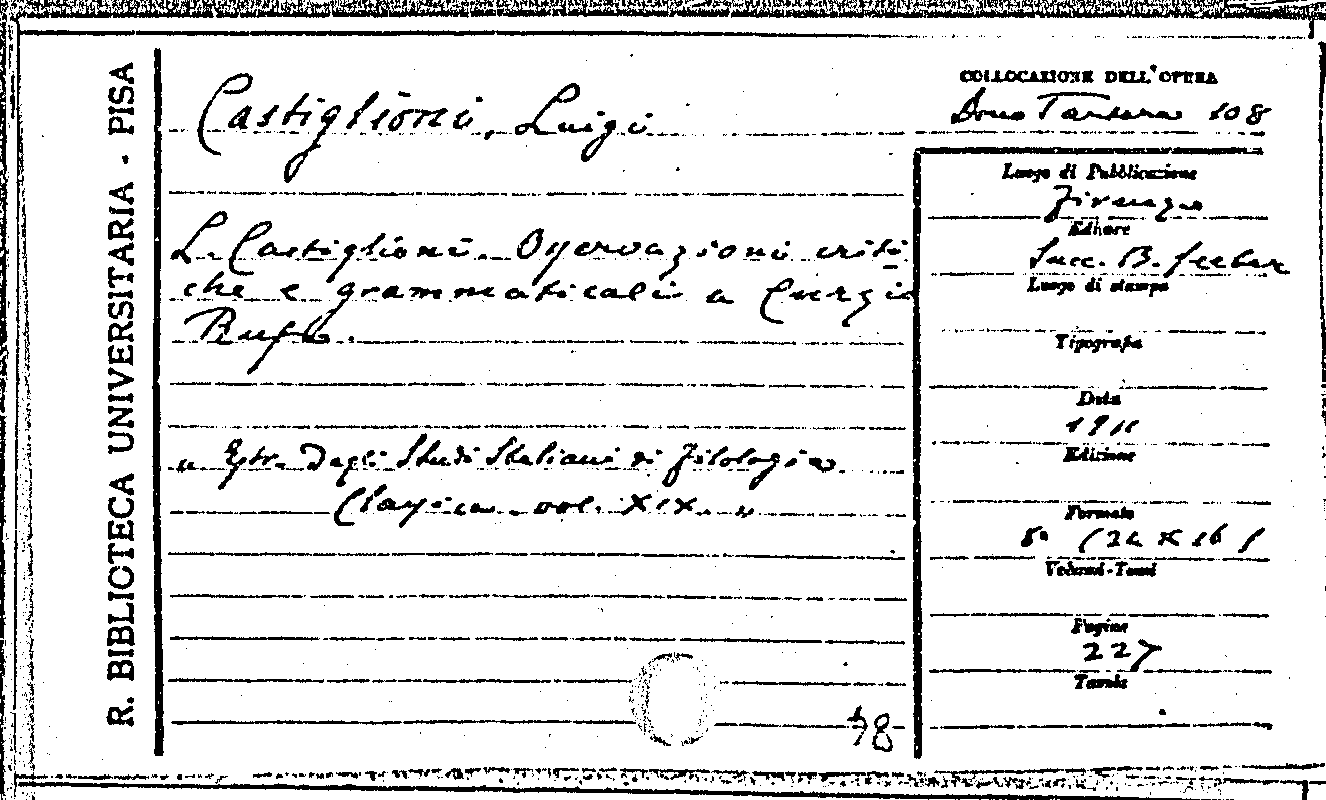 R. BIBLIOTECA UNIVERSITARIA - PISA
Castiglioni, Luigi
L. Castiglioni. Osservazioni criti-
che e grammaticali a Curzio
Rufo.
" Estr. dagli Studi Italiani di Filologia
Classica. vol. XIX. "
48
COLLOCAZIONE DELL'OPERA
Dono Tartara 108
Luogo di Pubblicazione
Firenze
Editore
Succ. B. Seeber
Luogo di stampa
Tipografia
Data
1911
Edizione
Formato
8° (24 x 16)
Volumi-Tomi
Pagine
227
Tavole